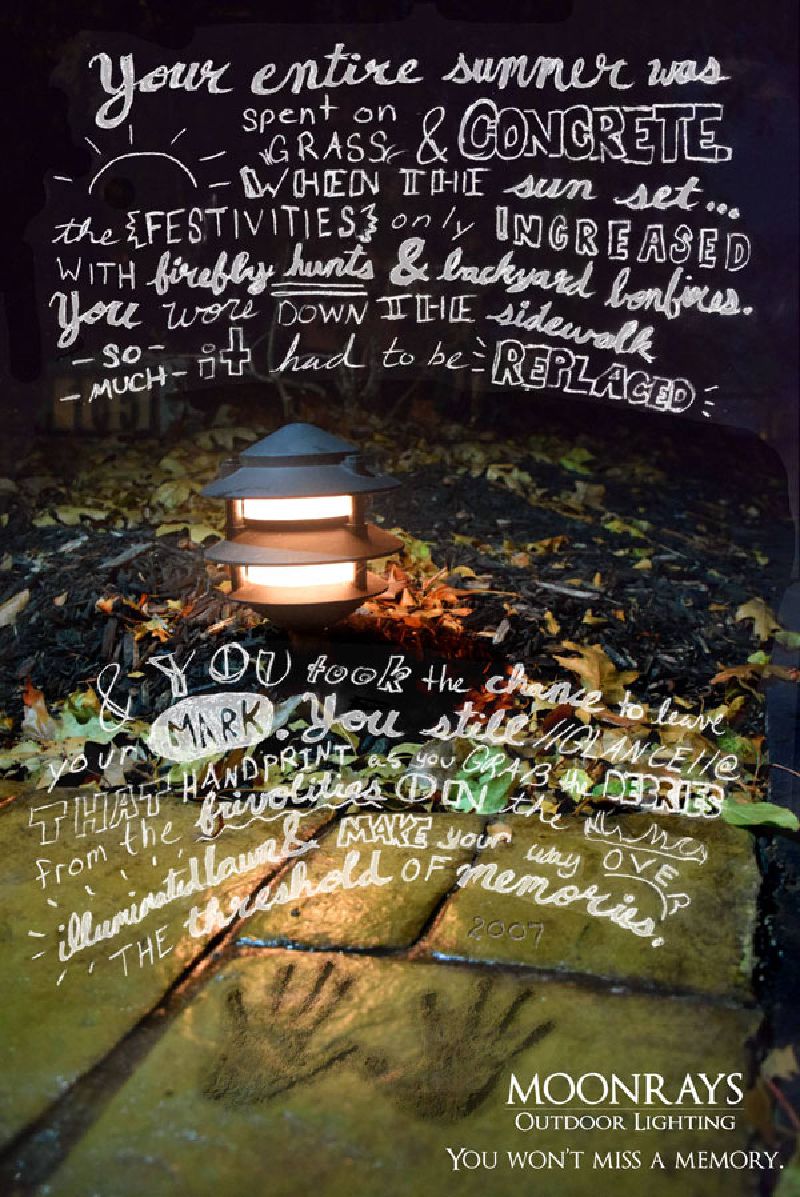 Your entire summer was
spent on
GRASS & CONCRETE.
WHEN THE sun set...
the {FESTIVITIES} only INCREASED
WITH firefly hunts & backyard bonfires.
You wore DOWN THE sidewalk
-SO-
-MUCH- it had to be REPLACED
& YOU took the chance to leave
your MARK. You still //GLANCE//@
THAT HANDPRINT as you GRAB the DEBRIES
from the frivolities ON the
illuminated lawn & MAKE your way OVER
THE threshold OF memories.
2007
MOONRAYS
OUTDOOR LIGHTING
YOU WON'T MISS A MEMORY.